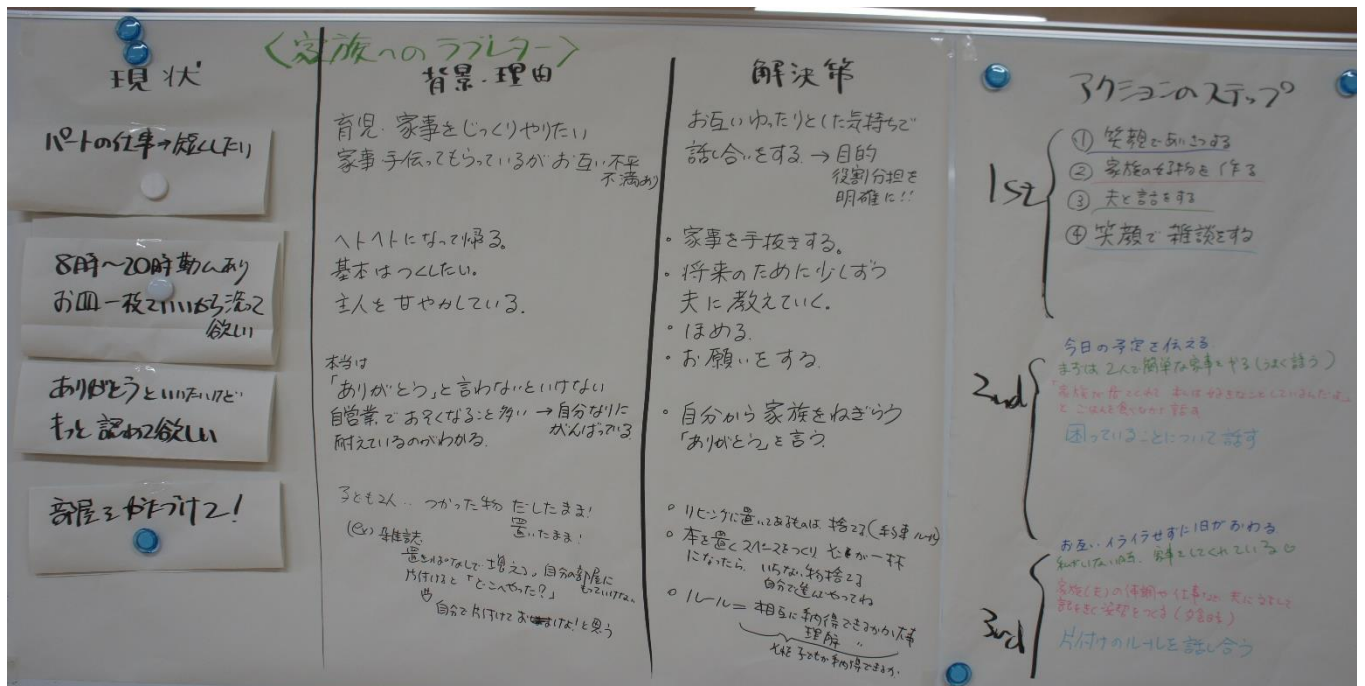 〈家族へのラブレター〉
現状
パートの仕事→短くしたい
8時～20時勤ムあり
お皿一枚でいいから洗って
欲しい
ありがとうといいたいけど
もっと認めて欲しい
部屋をかたづけて!
背景・理由
育児・家事をじっくりやりたい
家事手伝ってもらっているがお互い不平
不満あり
ヘトヘトになって帰る。
基本はつくしたい。
主人を甘やかしている。
本当は
「ありがとう」と言わないといけない
自営業でおそくなること多い→自分なりに
がんばっている
耐えているのがわかる。
子ども2人… つかった物 だしたまま!
置いたまま!
(ex) 雑誌
置きっぱなしで増える。自分の部屋に
もっていけない。
片付けると「どこへやった?」
自分で片付けておけよ!と思う
解決策
お互いゆったりとした気持ちで
話し合いをする→目的
役割分担を
明確に!!
・家事を手抜きする。
・将来のために少しずつ
夫に教えていく。
・ほめる。
・お願いをする。
・自分から家族をねぎらう
「ありがとう」を言う。
○リビングに置いてあるものは捨てる(ルール)
○本を置くスペースをつくり が一杯
になったら、いらない物捨てる
自分で進んでやってね
○ルール=相互に納得できるかが大事
理解 〃
子どもが納得できるか。
アクションのステップ
1st
① 笑顔であいさつする
② 家族の好物を作る
③ 夫と話をする
④ 笑顔で雑談をする
2nd
今日の予定を伝える
まずは2人で簡単な家事をやる(うまく誘う)
と ごはんを食べながら話す
困っていることについて話す
3rd
お互いイライラせずに1日がおわる
私がいない時、家事をしてくれている
片付けのルールを話し合う